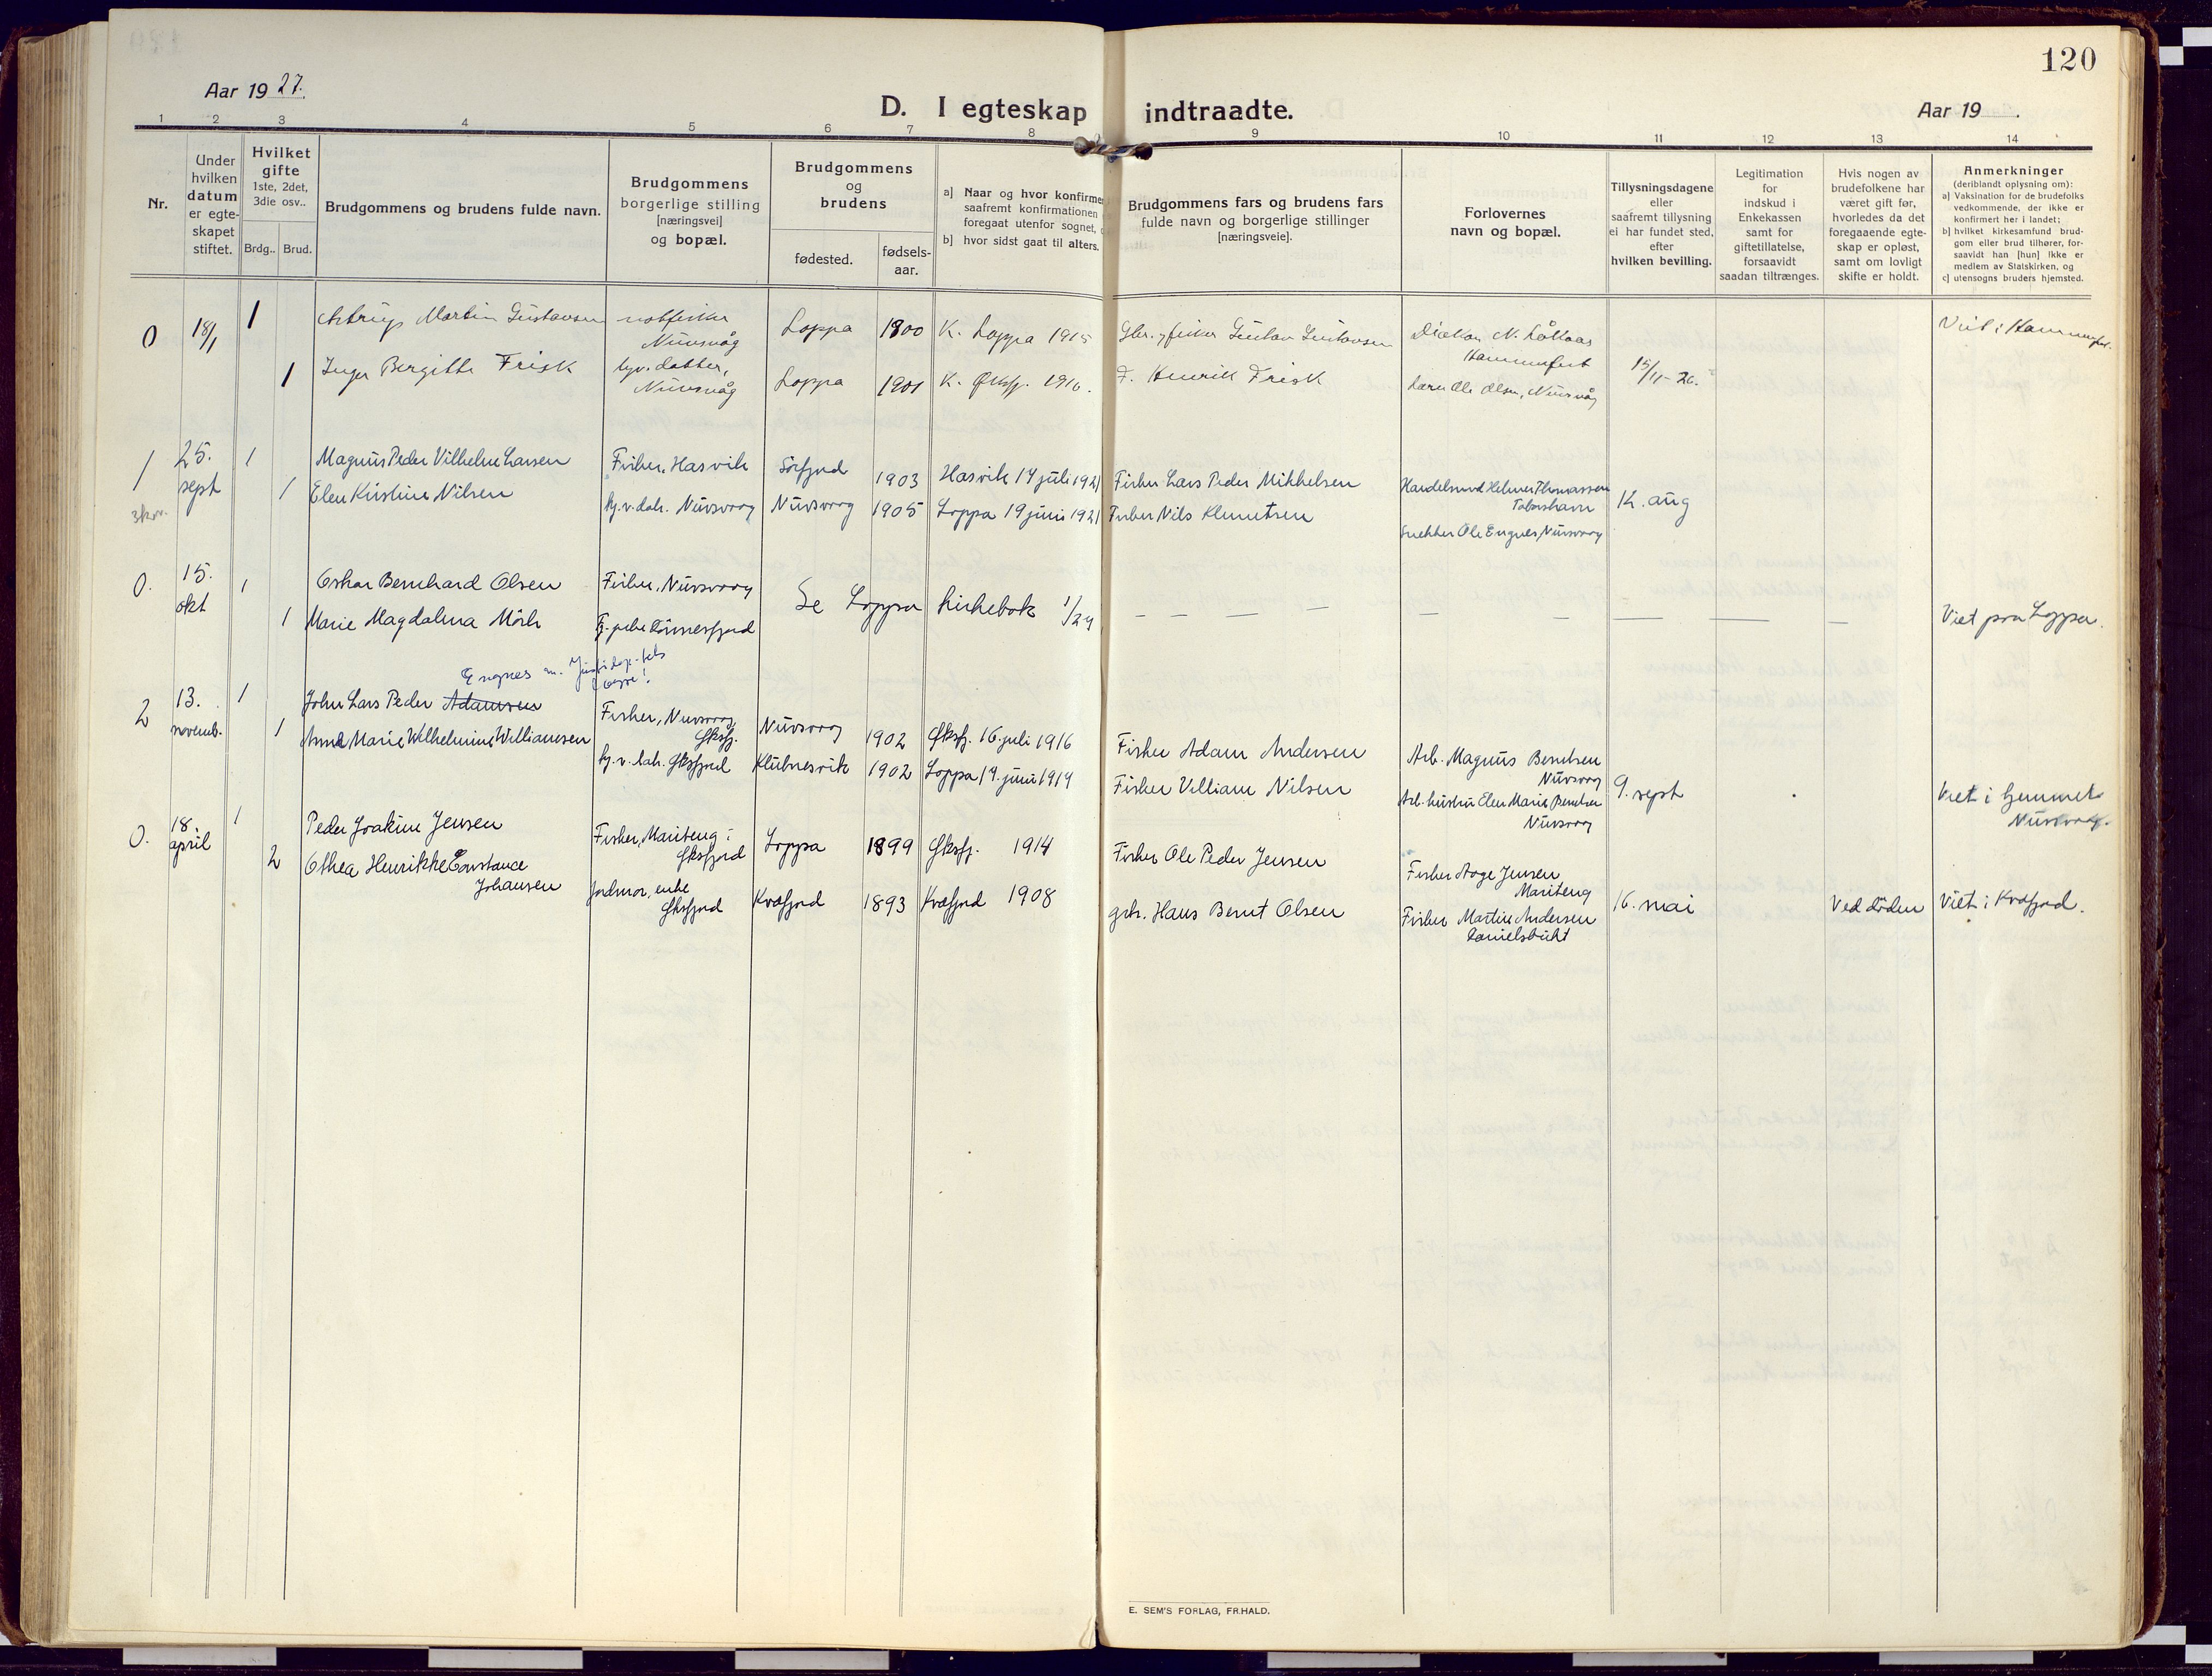 120
Aar 19 27.
D. I egteskap indtraadte.
Aar 19
1 2 3 4 5 6 7 8 9 10 11 12 13 14
Nr.
Under hvilken datum er egte- skapet stiftet.
Hvilket gifte 1ste, 2det, 3die osv..
Brdg.. Brud.
Brudgommens og brudens fulde navn.
Brudgommens borgerlige stilling [næringsvei] og bopæl.
Brudgommens og brudens
fødested.
fødsels- aar.
a] Naar og hvor konfirme
saafremt konfirmationen
foregaat utenfor sognet,
b] hvor sidst gaat til alters.
Brudgommens fars og brudens fars
fulde navn og borgerlige stillinger
[næringsveie].
Forlovernes
navn og bopæl.
Tillysningsdagene
eller
saafremt tillysning
ei har fundet sted,
efter
hvilken bevilling.
Legitimation
for
indskud i
Enkekassen
samt for
giftetillatelse,
forsaavidt
saadan tiltrænges.
Hvis nogen av
brudefolkene har
været gift før,
hvorledes da det
foregaaende egte-
skap er opløst,
samt om lovligt
skifte er holdt.
Anmerkninger
(deriblandt oplysning om):
a] Vaksination for de brudefolks
vedkommende, der ikke er
konfirmert her i landet;
b] hvilket kirkesamfund brud-
gom eller brud tilhører, for-
saavidt han [hun] ikke er
medlem av Statskirken, og
c] utensogns bruders hjemsted.
0 18/1 1 Astrup Martin Gustavsen notfisker Nuvsvåg Loppa 1900 K. Loppa 1915 Gbr. og fisker Gustav Gustavsen Diakon N. Hammerfest Viet i Hammerfest.
1 Inger Bergitte Frisk hjv. datter, Nuvsvåg Loppa 1901 K. Øksfj. 1916. F. Henrik Frisk Lærer Ole Olsen, Nuvsvåg 15/11-26.
1 25. sept 1 Magnus Peder Vilhelm Larsen Fisker, Hasvik Sörfjord 1903 Hasvik 14 juli 1921 Fisker Lars Peder Mikkelsen Handelsmd Helmer Thomassen
3 kr. 1 Elen Kristine Nilsen hj.v. datr. Nuvsvaag Nuvsvaag 1905 Loppa 19 juni 1921 Fisker Nils Klemetsen Snekker Ole Engnes, Nuvsvaag 12. aug
0. 15. okt 1 Oskar Bernhard Olsen Fisker, Nuvsvaag Se Loppa kirkebok 1/24
1 Marie Magdalena Mörk Viet paa Loppa.
Engnes
2 13. novemb. 1 John Lars Peder Adamsen Fisker, Nuvsvaag, Øksfj. Nuvsvaag 1902 Øksfj. 16. juli 1916 Fisker Adam Andersen Arb. Magnus Berntsen Nuvsvaag
1 Anna Marie Wilhelmine Williamsen hj.v. datr. Øksfjord Klubnesvik 1902 Loppa 14. juni 1914 Fisker Villiam Nilsen Arb. hustru Elen Marie Berntsen Nuvsvaag 9. sept Viet i hjemmet Nuvsvaag.
0. 18. april 1 Peder Joakim Jensen Fisker, Mariteng i Øksfjord Loppa 1899 Øksfj. 1914 Fisker Ole Peder Jensen Fisker Aage Jensen Mariteng
2 Othea Henrikke Constance Johansen Jordmor, enke Øksfjord Kvæfjord 1893 Kvæfjord 1908 grb. Hans Bernt Olsen Fisker Martin Andersen Danielsbukt 16. mai Ved döden Viet i Kvæfjord.
E. SEM'S FORLAG, FR.HALD.